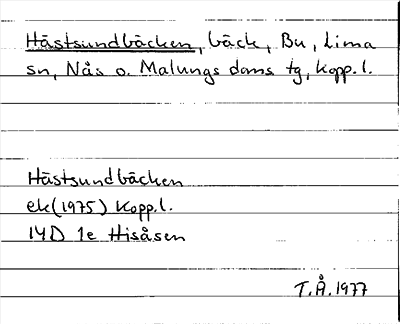 Hästsundbäcken, bäck, Bu, Lima
sn, Nås o. Malungs doms tg, Kopp.l.
Hästsundbäcken
ek(1975) Kopp.l.
14D 1e Hisåsen
T.Å.1977